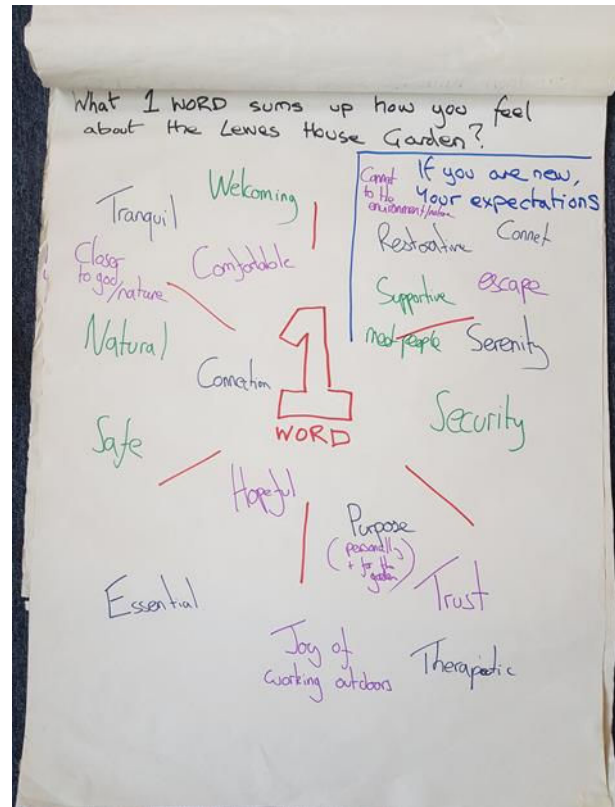 What 1 WORD sums up how you feel
about the Lewes House Garden?
If you are new,
Your expectations
Connect
to the
environment/nature
Restorative
Connet
Supportive
escape
meet people
Serenity
Welcoming
Tranquil
Closer
to god
/nature
Comfortable
Natural
Connection
1
WORD
Safe
Security
Hopeful
Purpose
(personally
+ for the
garden)
Trust
Essential
Joy of
working outdoors
Therapeutic